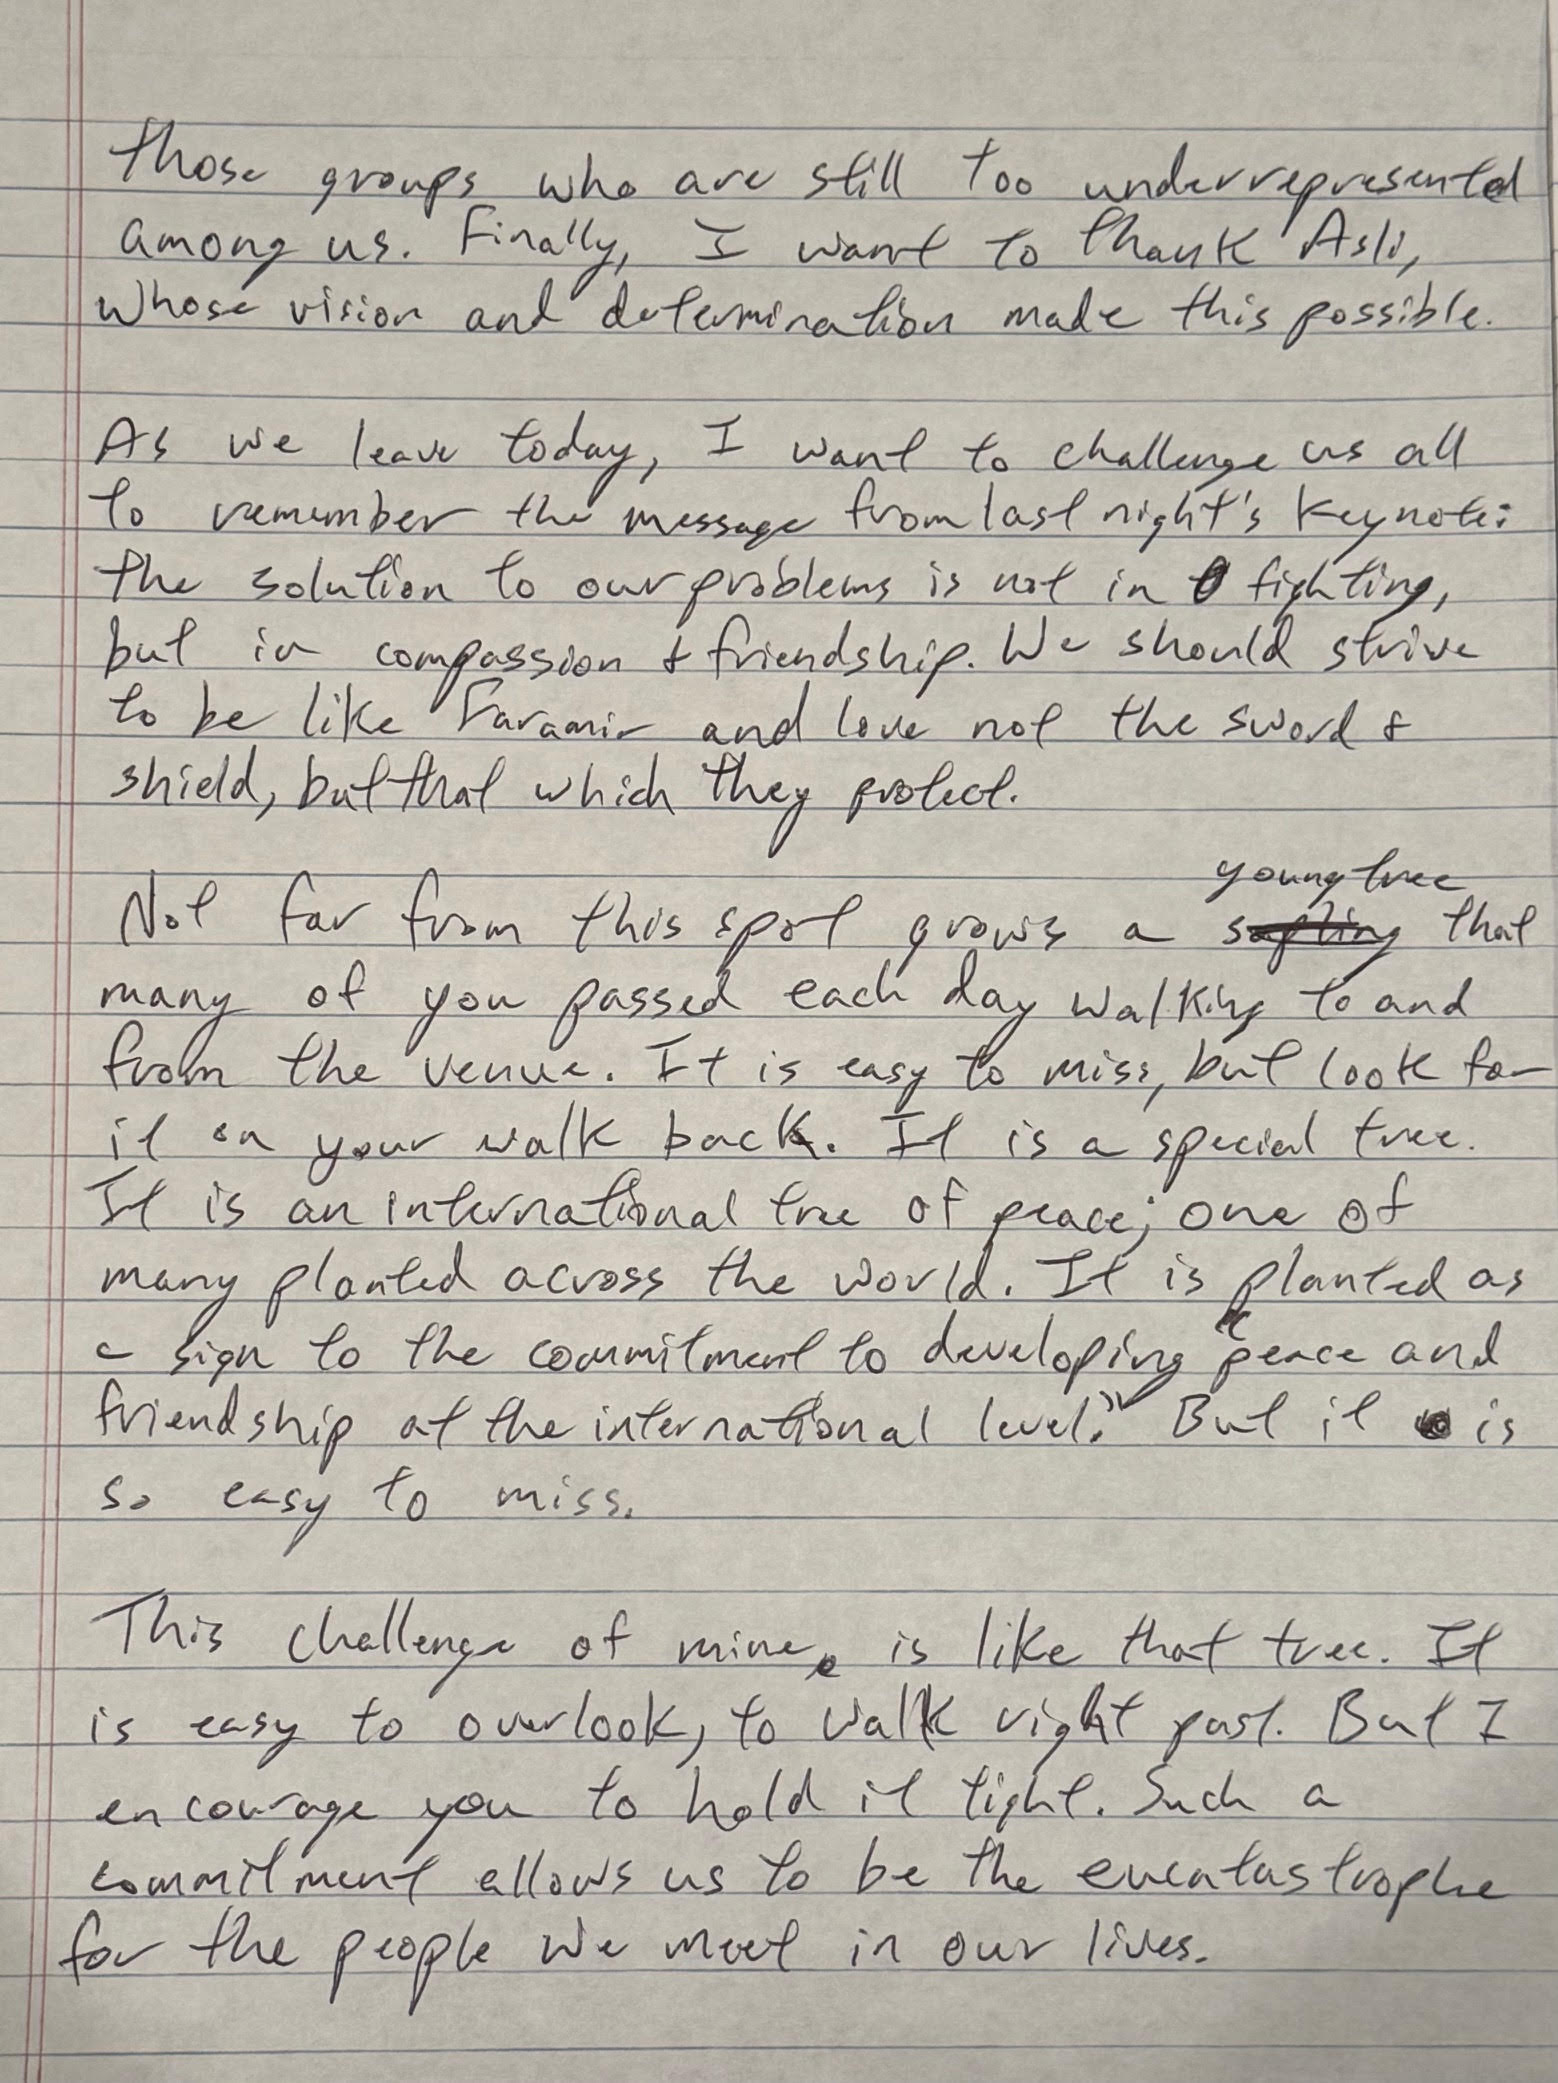 those groups who are still too underrepresented
among us. Finally, I want to thank Asli,
whose vision and determination made this possible.
As we leave today, I want to challenge us all
to remember the message from last night's keynote:
the solution to our problems is not in fighting,
but in compassion & friendship. We should strive
to be like Faramir and love not the sword &
shield, but that which they protect.
young tree
Not far from this spot grows a sapling that
many of you passed each day walking to and
from the venue. It is easy to miss, but look for
it on your walk back. It is a special tree.
It is an international tree of peace; one of
many planted across the world. It is planted as
a sign to the commitment to developing "peace and
friendship at the international level." But it is
so easy to miss.
This challenge of mine is like that tree. It
is easy to overlook, to walk right past. But I
encourage you to hold it tight. Such a
commitment allows us to be the eucatastrophe
for the people we meet in our lives.